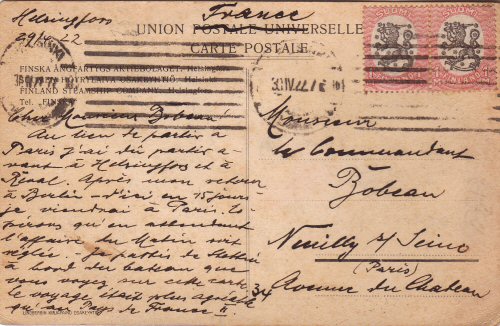 Helsingfors
29/4 22
France
UNION POSTALE UNIVERSELLE
CARTE POSTALE
FINSKA ÅNGFARTYGS AKTIEBOLAGET, Helsingfors
FINLAND STEAMSHIP COMPANY, Helsingfors
Tel.
SUOMI FINLAND
30.IV.22
Cher Monsieur Bobeau
Au lieu de partir à
Paris j'ai dû partir a-
vant à Helsingfors et à
Reval. Après mon retour
à Berlin - d'ici en 15 jours -
je viendrai à Paris. Es-
pérons qu'en attendant
l'affaire du Matin soit
réglée. - Je partis de Stettin
à bord du bateau que
vous voyez sur cette carte
le voyage était plus agréable
qu'au Pays de France II.
Monsieur
le Commandant
Bobeau
Neuilly s/ Seine
(Paris)
34 Avenue du Chateau